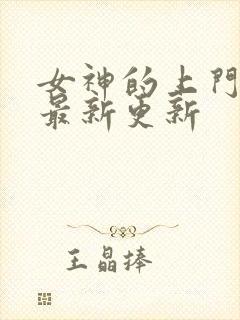 女神的上門
最新更新
王晶捧